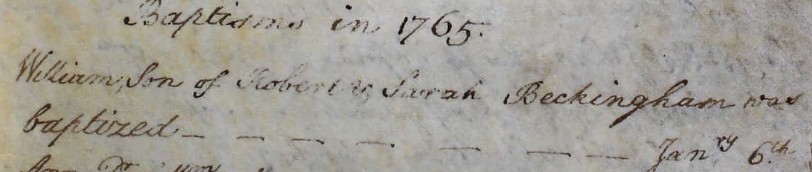 Baptisms in 1765.
William, Son of Robert & Sarah Beckingham was
baptized — — — — — — — Janry 6th